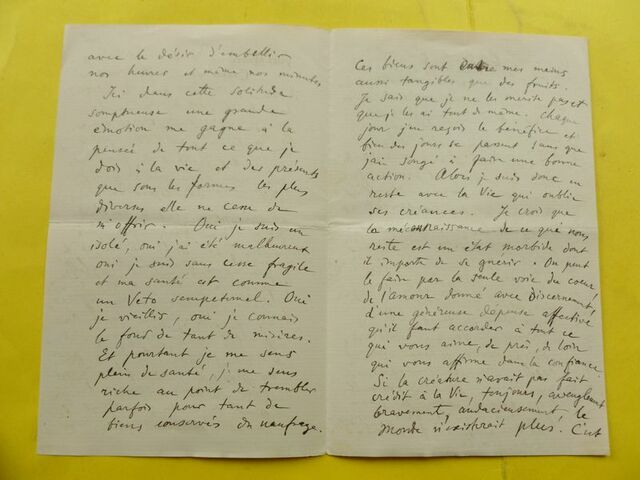 avec le désir d'embellir
nos heures et même nos minutes
Ici dans cette solitude
somptueuse une grande
émotion me gagne à la
pensée de tout ce que je
dois à la vie et des présents
que sous les formes les plus
diverses elle ne cesse de
m'offrir. Oui je suis un
isolé, oui j'ai été malheureux
oui je suis sans cesse fragile
et ma santé est comme
un Veto sempiternel. Oui
je vieillis, oui je connais
le fond de tant de misères.
Et pourtant je me sens
plein de santé, je me sens
riche au point de trembler
parfois pour tant de
biens conservés du naufrage.
Ces biens sont entre mes mains
aussi tangibles que des fruits.
Je sais que je ne les mérite pas et
que je les ai tout de même. Chaque
jour j'en reçois le bénéfice et
bien des jours se passent sans que
j'aie songé à faire une bonne
action. Alors je suis donc en
reste avec la Vie qui oublie
ses créances. Je crois que
la méconnaissance de ce qui nous
reste est un état morbide dont
il importe de se guérir. On peut
le faire par la seule voie du cœur,
de l'amour donné avec Discernement,
d'une généreuse dépense affective
qu'il faut accorder à tout ce
qui vous aime, de près, de loin
qui vous affirme dans la confiance.
Si la créature n'avait pas fait
crédit à la Vie, toujours, aveuglément
bravement, audacieusement, le
Monde n'existerait plus. C'est